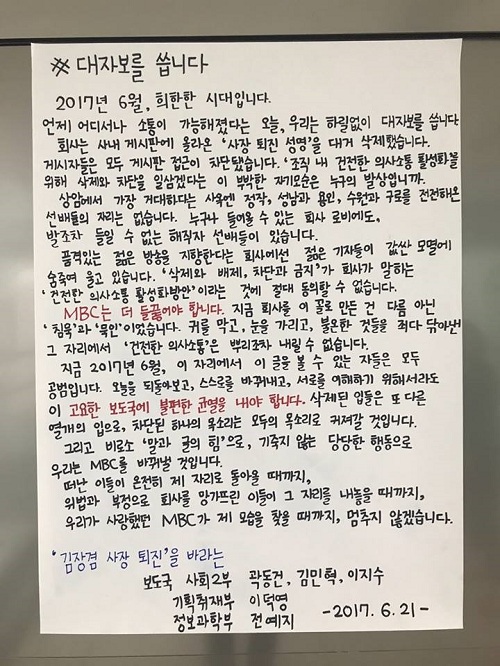 ※ 대자보를 씁니다
2017년 6월, 희한한 시대입니다.
언제 어디서나 소통이 가능해졌다는 오늘, 우리는 하릴없이 대자보를 씁니다
회사는 사내 게시판에 올라온 '사장 퇴진 성명'을 대거 삭제했습니다.
게시자들은 모두 게시판 접근이 차단됐습니다. '조직 내 건전한 의사소통 활성화'를
위해 삭제와 차단을 일삼겠다는 이 부박한 자기모순은 누구의 발상입니까.
상암에서 가장 거대하다는 사옥엔 정작, 성남과 용인, 수원과 구로를 전전해온
선배들의 자리는 없습니다. 누구나 들어올 수 있는 회사 로비에도,
발조차 들일 수 없는 해직자 선배들이 있습니다.
품격있는 젊은 방송을 지향한다는 회사에선 젊은 기자들이 값싼 모멸에
숨죽여 울고 있습니다. '삭제와 배제, 차단과 금지'가 회사가 말하는
'건전한 의사소통 활성화방안'이라는 것에 절대 동의할 수 없습니다.
MBC는 더 들끓어야 합니다. 지금 회사를 이 꼴로 만든 건 다름 아닌
'침묵'과 '묵인'이었습니다. 귀를 막고, 눈을 가리고, 불온한 것들을 죄다 닦아낸
그 자리에서 '건전한 의사소통'은 뿌리조차 내릴 수 없습니다.
지금 2017년 6월, 이 자리에서 이 글을 볼 수 있는 자들은 모두
공범입니다. 오늘을 되돌아보고, 스스로를 바꿔내고, 서로를 이해하기 위해서라도
이 고요한 보도국에 불편한 균열을 내야 합니다. 삭제된 입들은 또 다른
열개의 입으로, 차단된 하나의 목소리는 모두의 목소리로 커져갈 것입니다.
그리고 비로소 '말과 글의 힘'으로, 기죽지 않는 당당한 행동으로
우리는 MBC를 바꿔낼 것입니다.
떠난 이들이 온전히 제 자리로 돌아올 때까지,
위법과 부정으로 회사를 망가뜨린 이들이 그 자리를 내놓을 때까지,
우리가 사랑했던 MBC가 제 모습을 찾을 때까지, 멈추지 않겠습니다.
'김장겸 사장 퇴진'을 바라는
보도국 사회2부 곽동건, 김민혁, 이지수
기획취재부 이덕영
정보과학부 전예지
-2017. 6. 21-